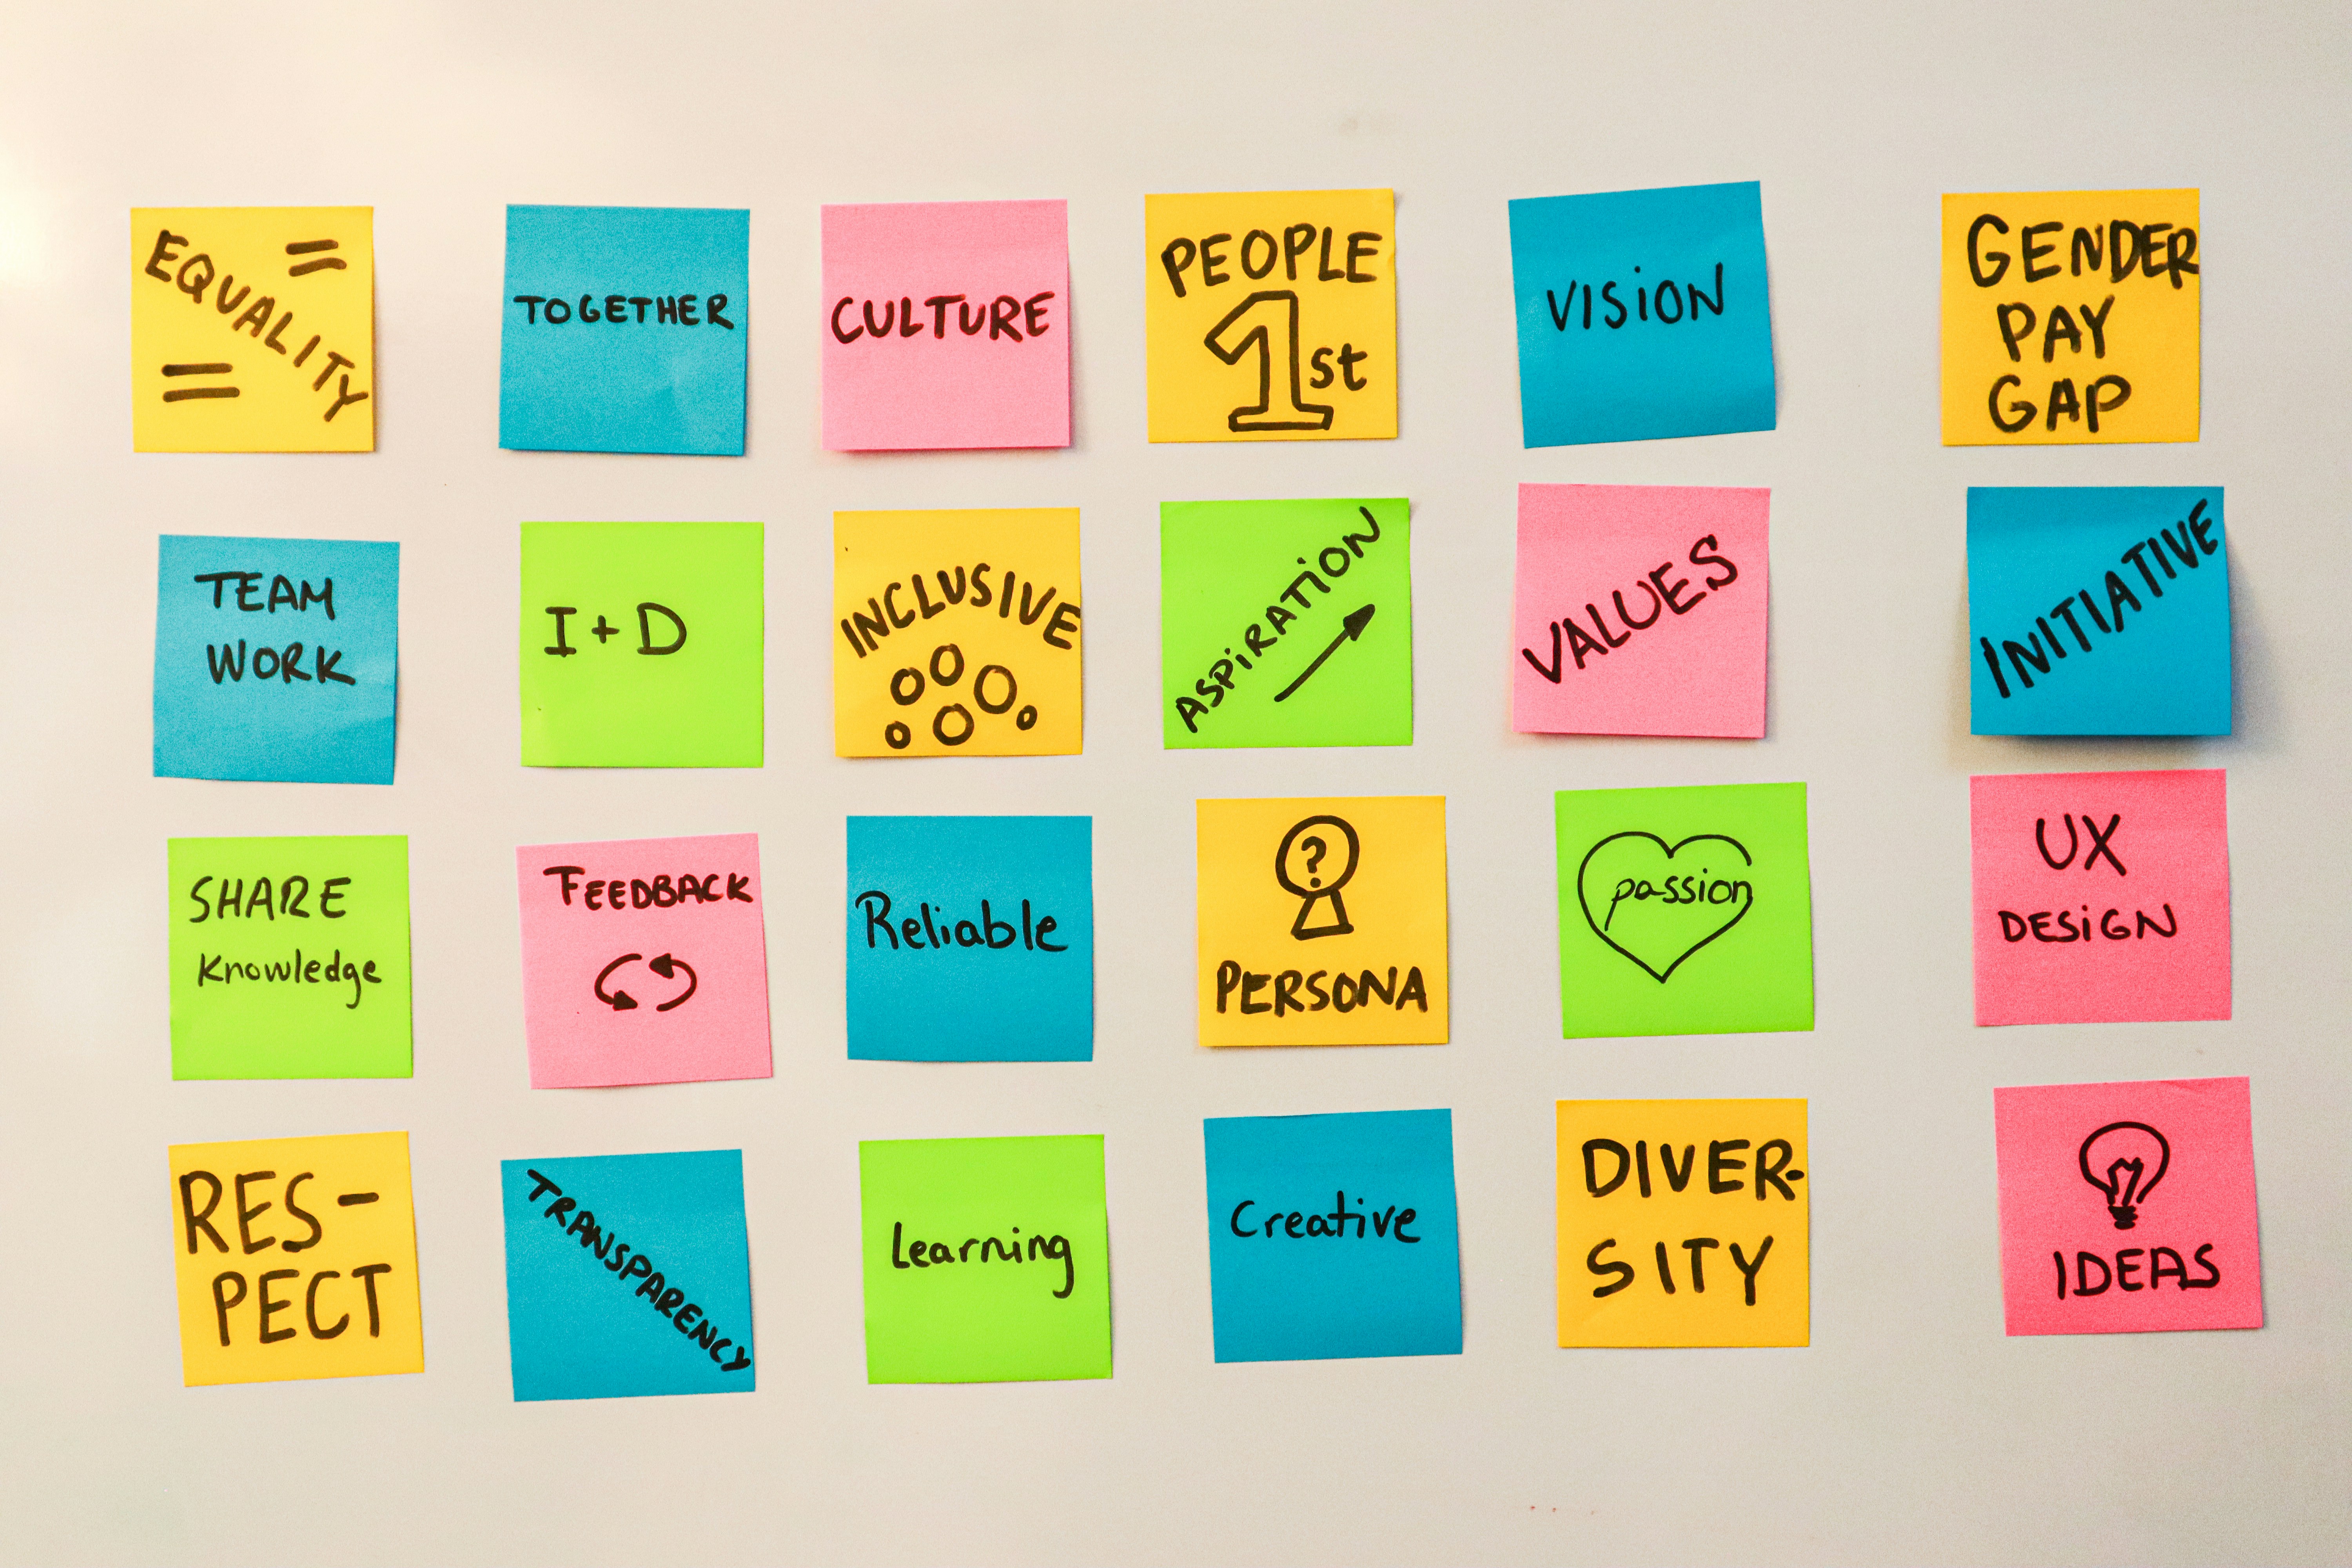 EQUALITY
=
=
TOGETHER
CULTURE
PEOPLE
1st
VISION
GENDER
PAY
GAP
TEAM
WORK
I+D
INCLUSIVE
ASPIRATION
VALUES
INITIATIVE
SHARE
Knowledge
FEEDBACK
Reliable
?
PERSONA
passion
UX
DESIGN
RES-
PECT
TRANSPARENCY
Learning
Creative
DIVER-
SITY
IDEAS